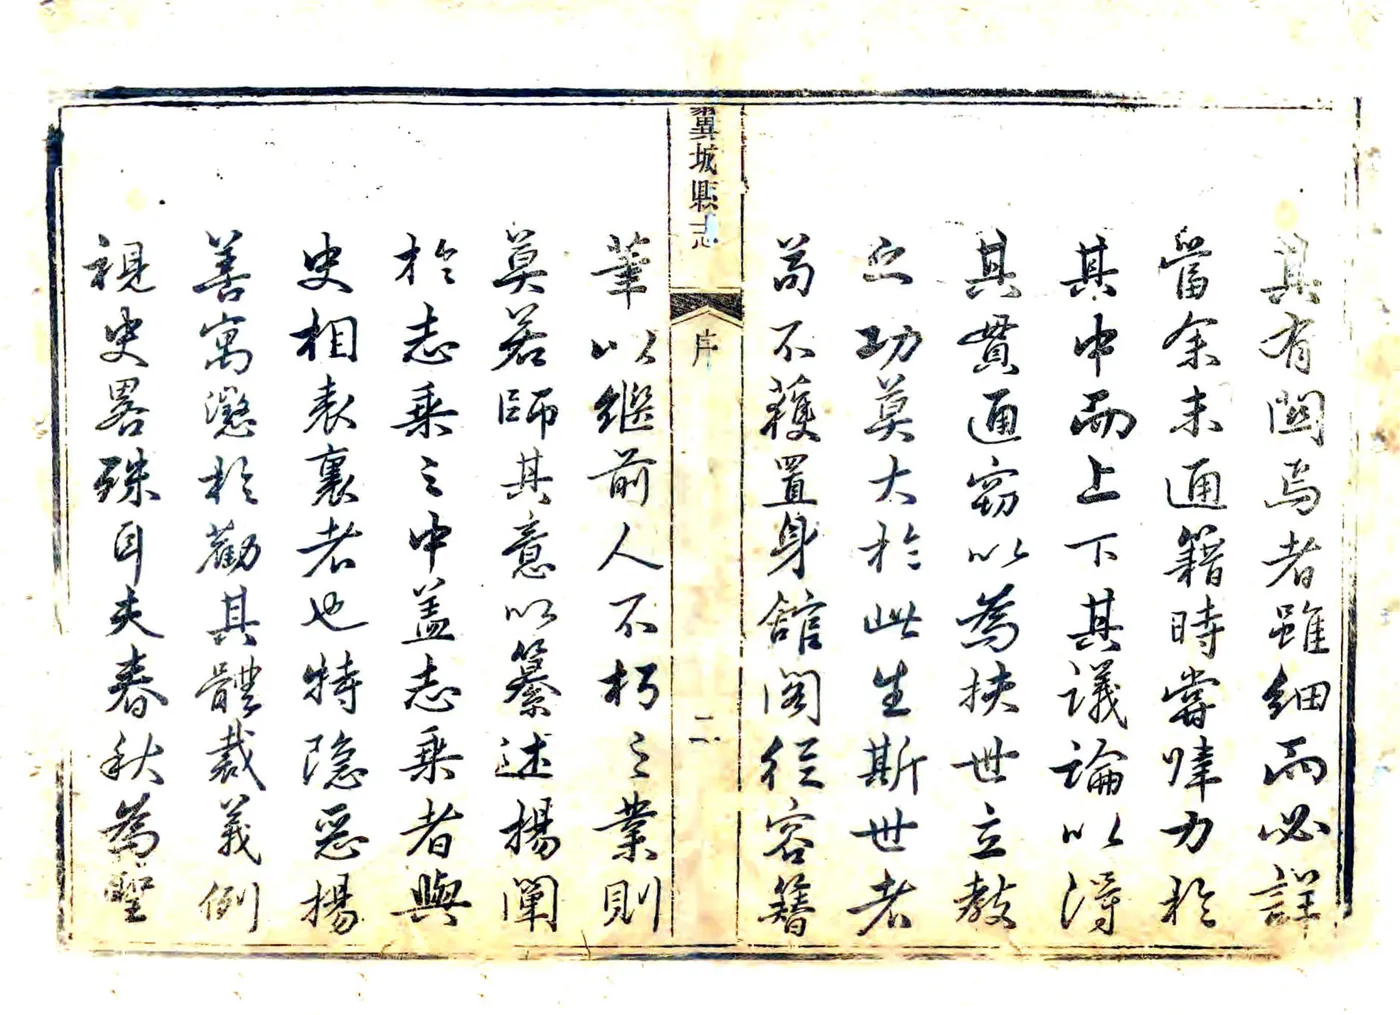 具有関焉者雖細而必詳
當余未通籍時嘗嘩力於
其中而上下其議論以得
其貫通窃以為扶世立教
之功莫大於此生斯世者
苟不獲置身舘阁從容簪
翼城縣志
序
二
筆以繼前人不朽之業則
莫若師其意以纂述揚闡
於志乘之中盖志乘者與
史相表裏者也特隐惡揚
善寓懲於勸其體裁義例
視史畧殊耳夫春秋為聖